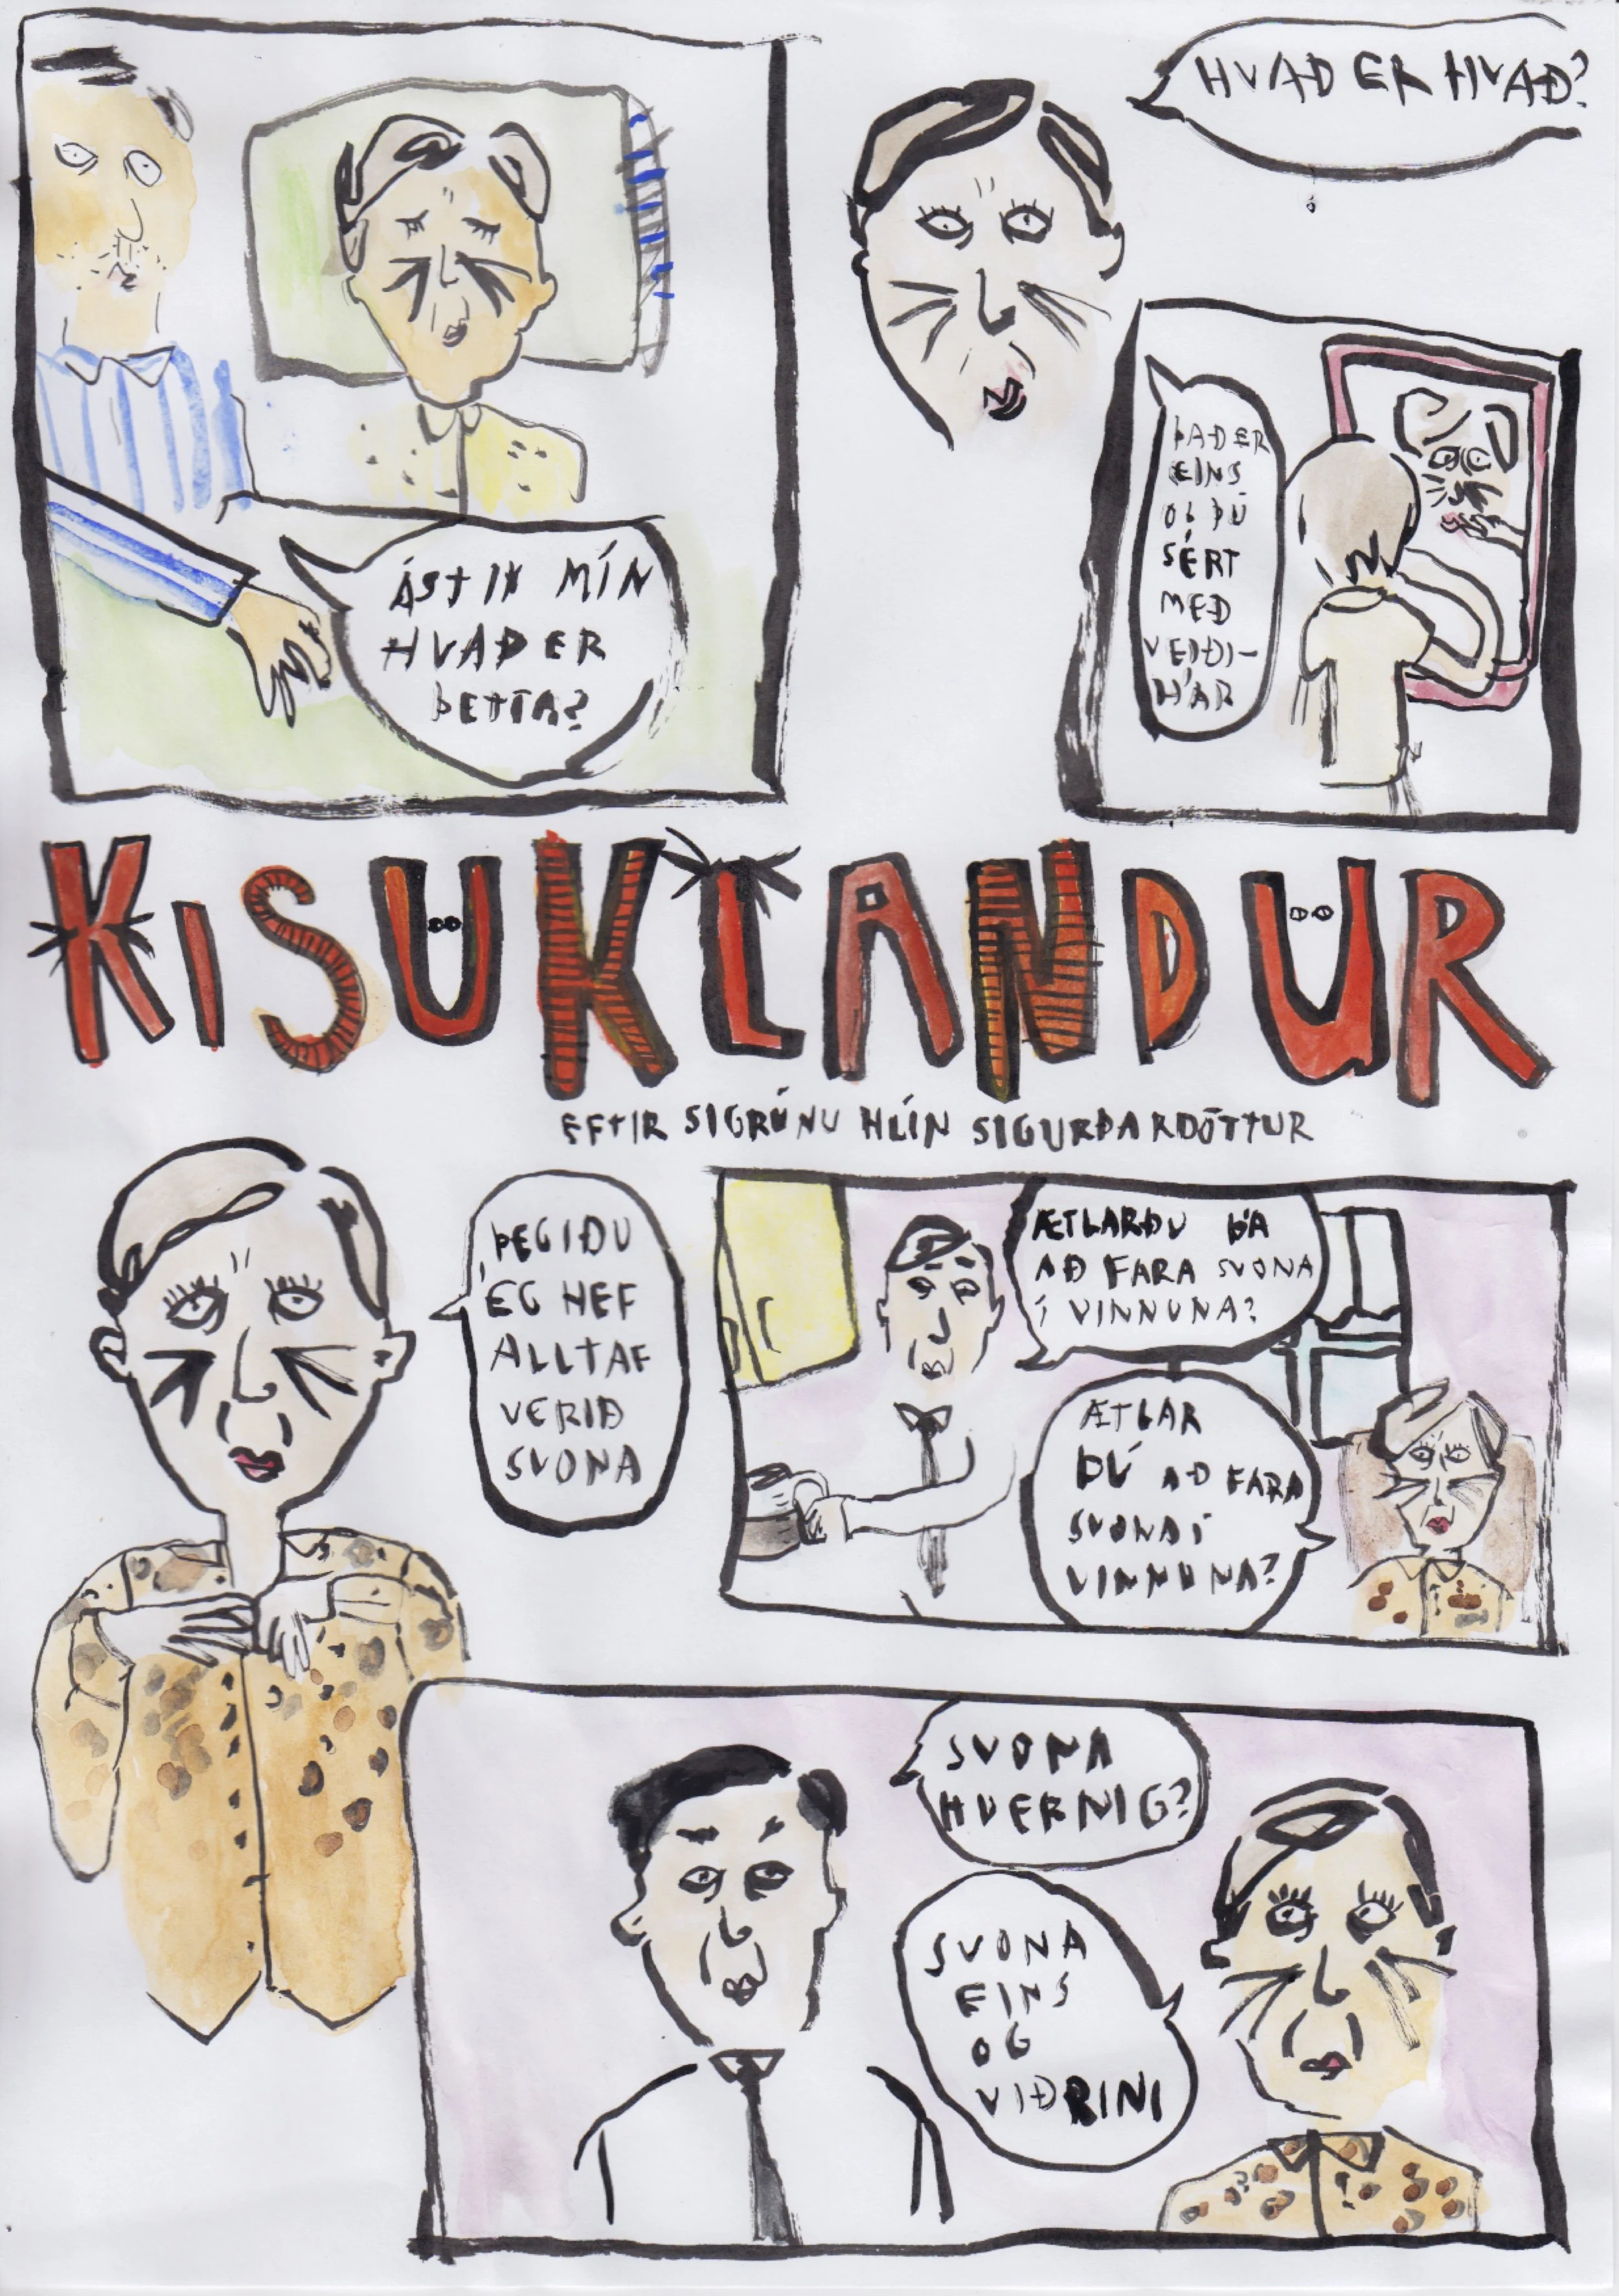 HVAÐ ER HVAÐ?
ÁSTIN MÍN
HVAÐ ER
ÞETTA?
ÞAÐ ER
EINS
OG ÞÚ
SÉRT
MEÐ
VEIÐI-
HÁR
KISUKLANDUR
EFTIR SIGRÚNU HLÍN SIGURÐARDÓTTUR
ÞEGIÐU
ÉG HEF
ALLTAF
VERIÐ
SVONA
ÆTLARÐU ÞÁ
AÐ FARA SVONA
Í VINNUNA?
ÆTLAR
ÞÚ AÐ FARA
SVONA Í
VINNUNA?
SVONA
HVERNIG?
SVONA
EINS
OG
VIÐRINI